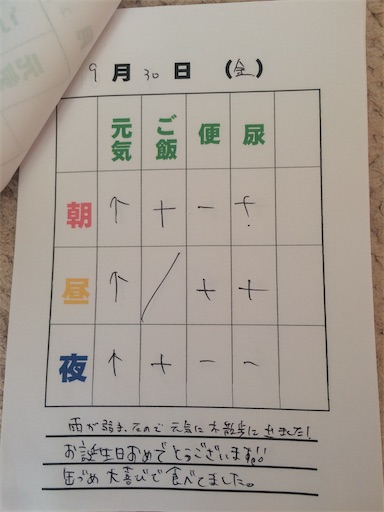 9月30日(金)
元気 ご飯 便 尿
朝 ↑ + - +
昼 ↑ / + +
夜 ↑ + - -
雨が弱まったので元気にお散歩に出ました!
お誕生日おめでとうございます!!
缶づめ大喜びで食べてました。